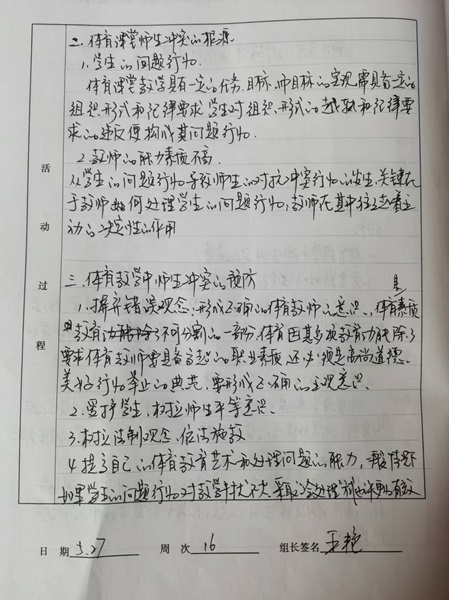 二、体育课堂师生冲突的根源
1.学生的问题行为.
体育课堂教学具有一定的任务、目标,而目标的实现需具备一定的
组织形式和纪律要求 学生对组织形式的 和纪律要
求的违反便构成其问题行为.
2.教师的能力素质不高.
从学生的问题行为导致师生的对抗冲突行为的发生,关键在
于教师如何处理学生的问题行为,教师在其中往往起着主
动的决定性的作用
活动过程
三、体育教学中师生冲突的预防
1.摒弃错误观念,形成正确的体育教师的意识.体育素质是
教育 不可分割的一部分.体育因其多项教育功能 除了
要求体育教师需具备 的职业素质,还必须是高尚道德、
美好行为举止的典范,要形成正确的主观意识.
2.爱护学生,树立师生平等意识.
3.树立法制观念,依法施教
4.提高自己的体育教育艺术和处理问题的能力,
如果学生的问题行为对教学干扰不大 采取冷处理 更有效
日 期 3.27 周 次 16 组长签名 王艳